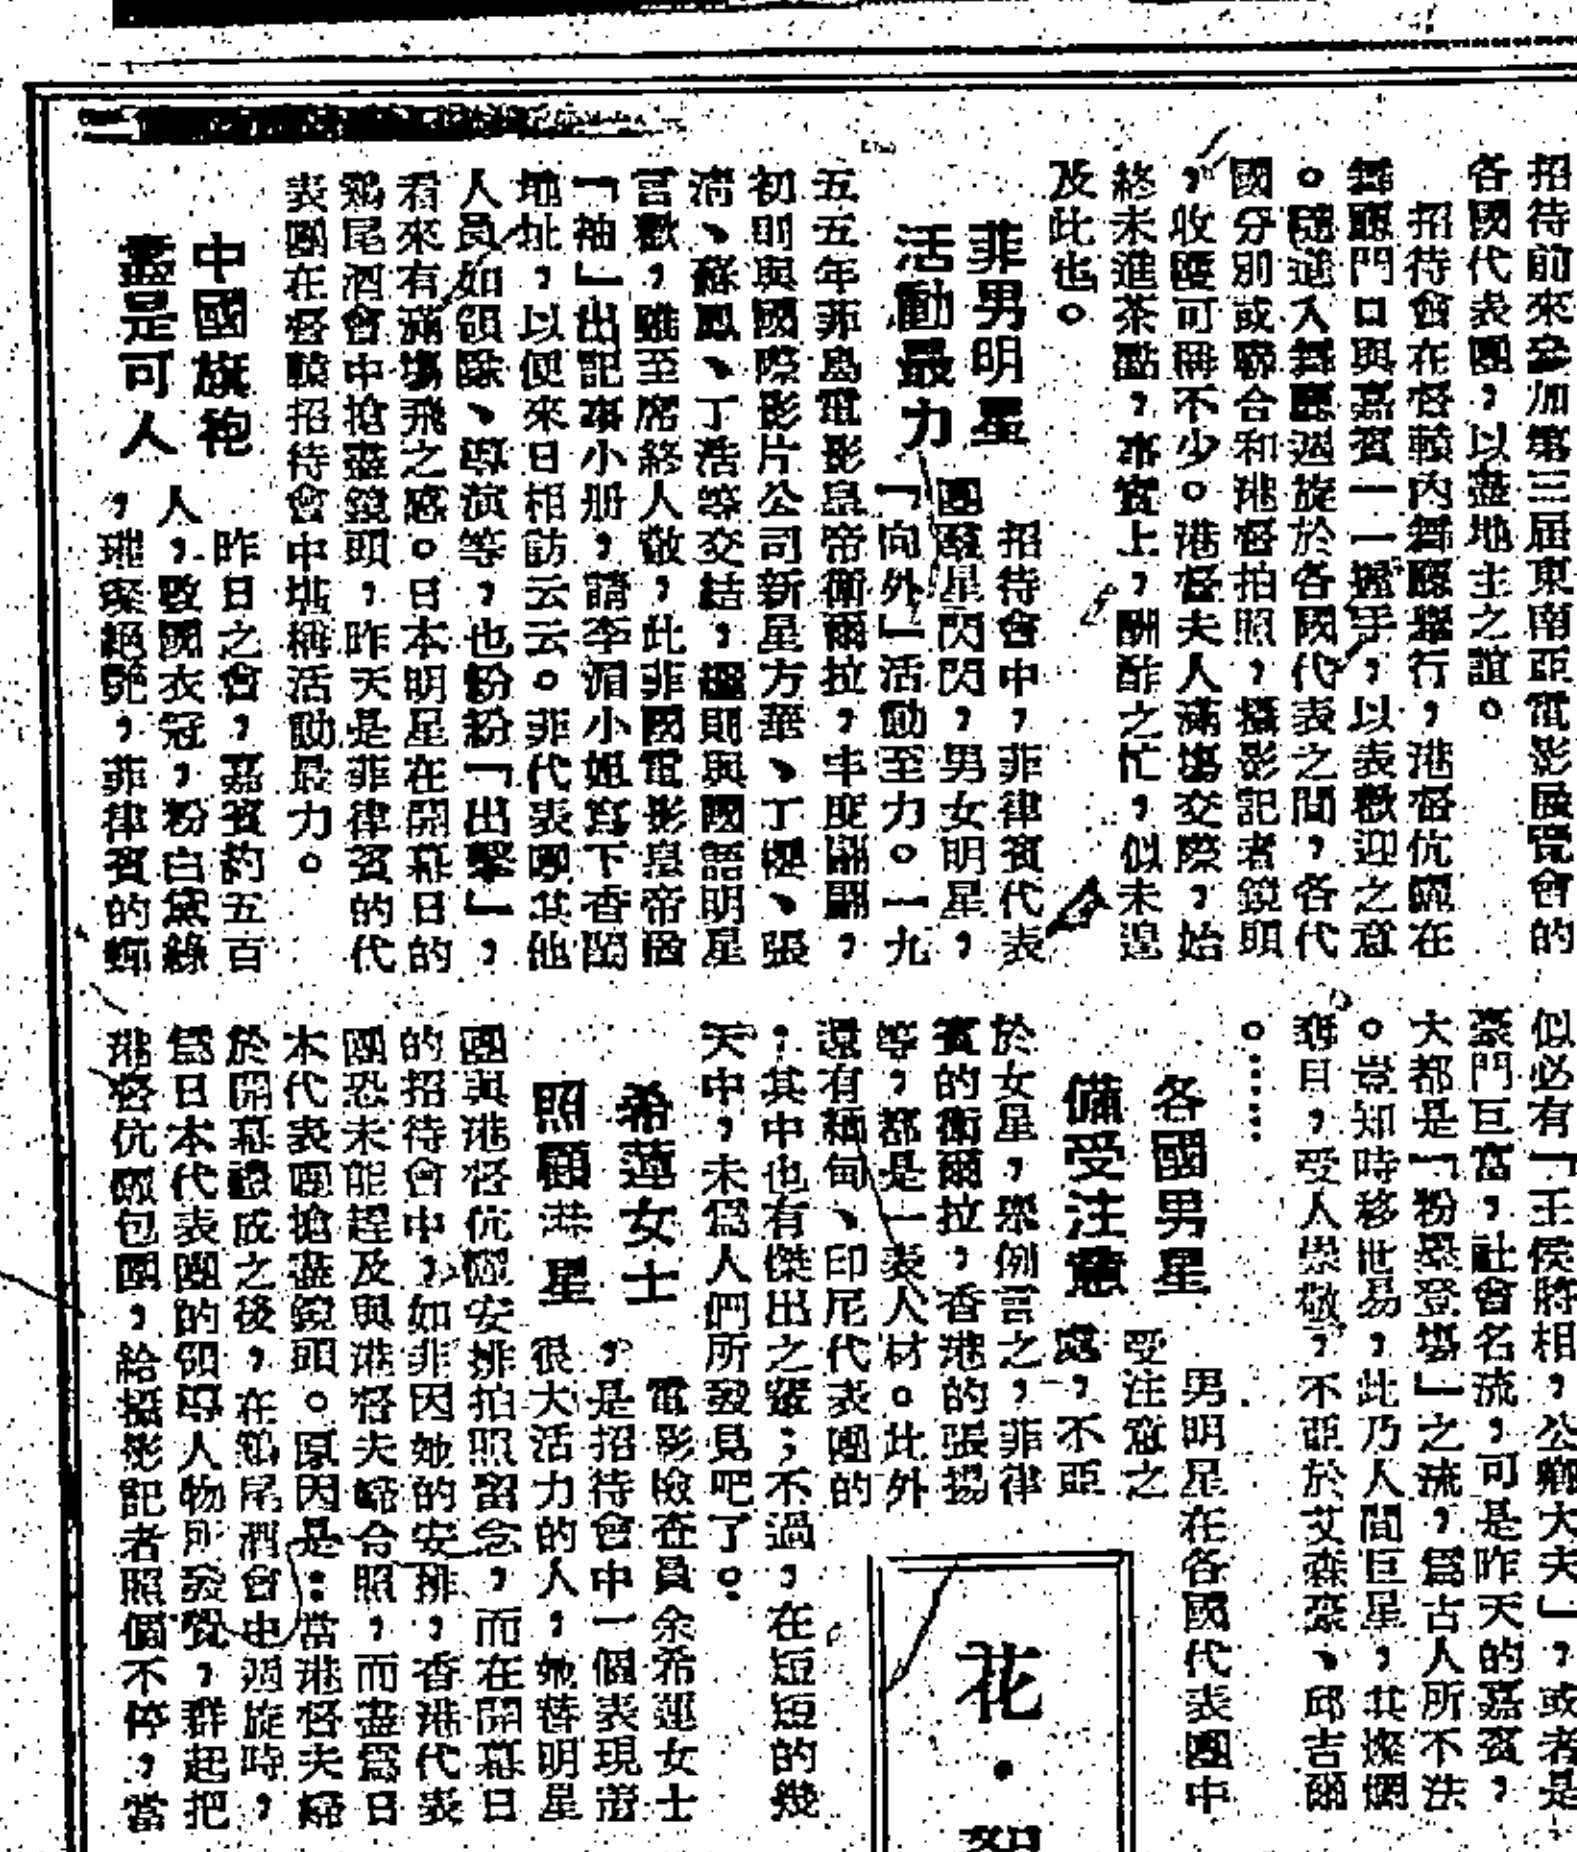 招待前來參加第三屆東南亞電影展覽會的
各國代表團，以盡地主之誼。
招待會在督轅內舞廳舉行，港督伉儷在
舞廳門口與嘉賓一一握手，以表歡迎之意
。隨進入舞廳週旋於各國代表之間，各代
國分別或聯合和港督拍照，攝影記者鏡頭
，收穫可稱不少。港督夫人滿場交際，始
終未進茶點，事實上，酬酢之忙，似未遑
及此也。
菲男明星
活動最力
招待會中，菲律賓代表
團星閃閃，男女明星，
「向外」活動至力。一九
五五年菲島電影皇帝衛爾拉，丰度翩翩，
初則與國際影片公司新星方華、丁櫻、張
清、蘇鳳、丁浩等交結，繼則與國語明星
言歡，雖至席終人散，此非國電影皇帝猶
「袖」出記事小册，請李湄小姐寫下香閨
地址，以便來日相訪云云。菲代表團其他
人員如領隊、導演等，也紛紛「出擊」，
看來有滿場飛之感。日本明星在開幕日的
鷄尾酒會中搶盡鏡頭，昨天是菲律賓的代
表團在督轅招待會中堪稱活動最力。
中國旗袍
盡是可人
昨日之會，嘉賓約五百
人，數國衣冠，粉白黛綠
，璀璨絕艷，菲律賓的輝
似必有「王侯將相，公卿大夫」，或者是
豪門巨富，社會名流，可是昨天的嘉賓，
大都是「粉墨登場」之流，爲古人所不法
。豈知時移世易，此乃人間巨星，其燦爛
奪日，受人崇敬，不亞於艾森豪、邱吉爾
。……
各國男星
備受注意
男明星在各國代表團中
受注意之
處，不亞
於女星，舉例言之，菲律
賓的衛爾拉，香港的張揚
等，都是一表人材。此外
還有緬甸、印尼代表團的
，其中也有傑出之輩；不過，在短短的幾
天中，未爲人們所發見吧了。
希蓮女士
照顧港星
電影檢查員余希蓮女士
，是招待會中一個表現着
很大活力的人，她替明星
團與港督伉儷安排拍照留念，而在開幕日
的招待會中，如非因她的安排，香港代表
團恐未能趕及與港督夫婦合照，而盡爲日
本代表團搶盡鏡頭。原因是：當港督夫婦
於開幕禮成之後，在鷄尾酒會中週旋時，
爲日本代表團的領導人物所發覺，群起把
港督伉儷包圍，給攝影記者照個不停，當
花・絮